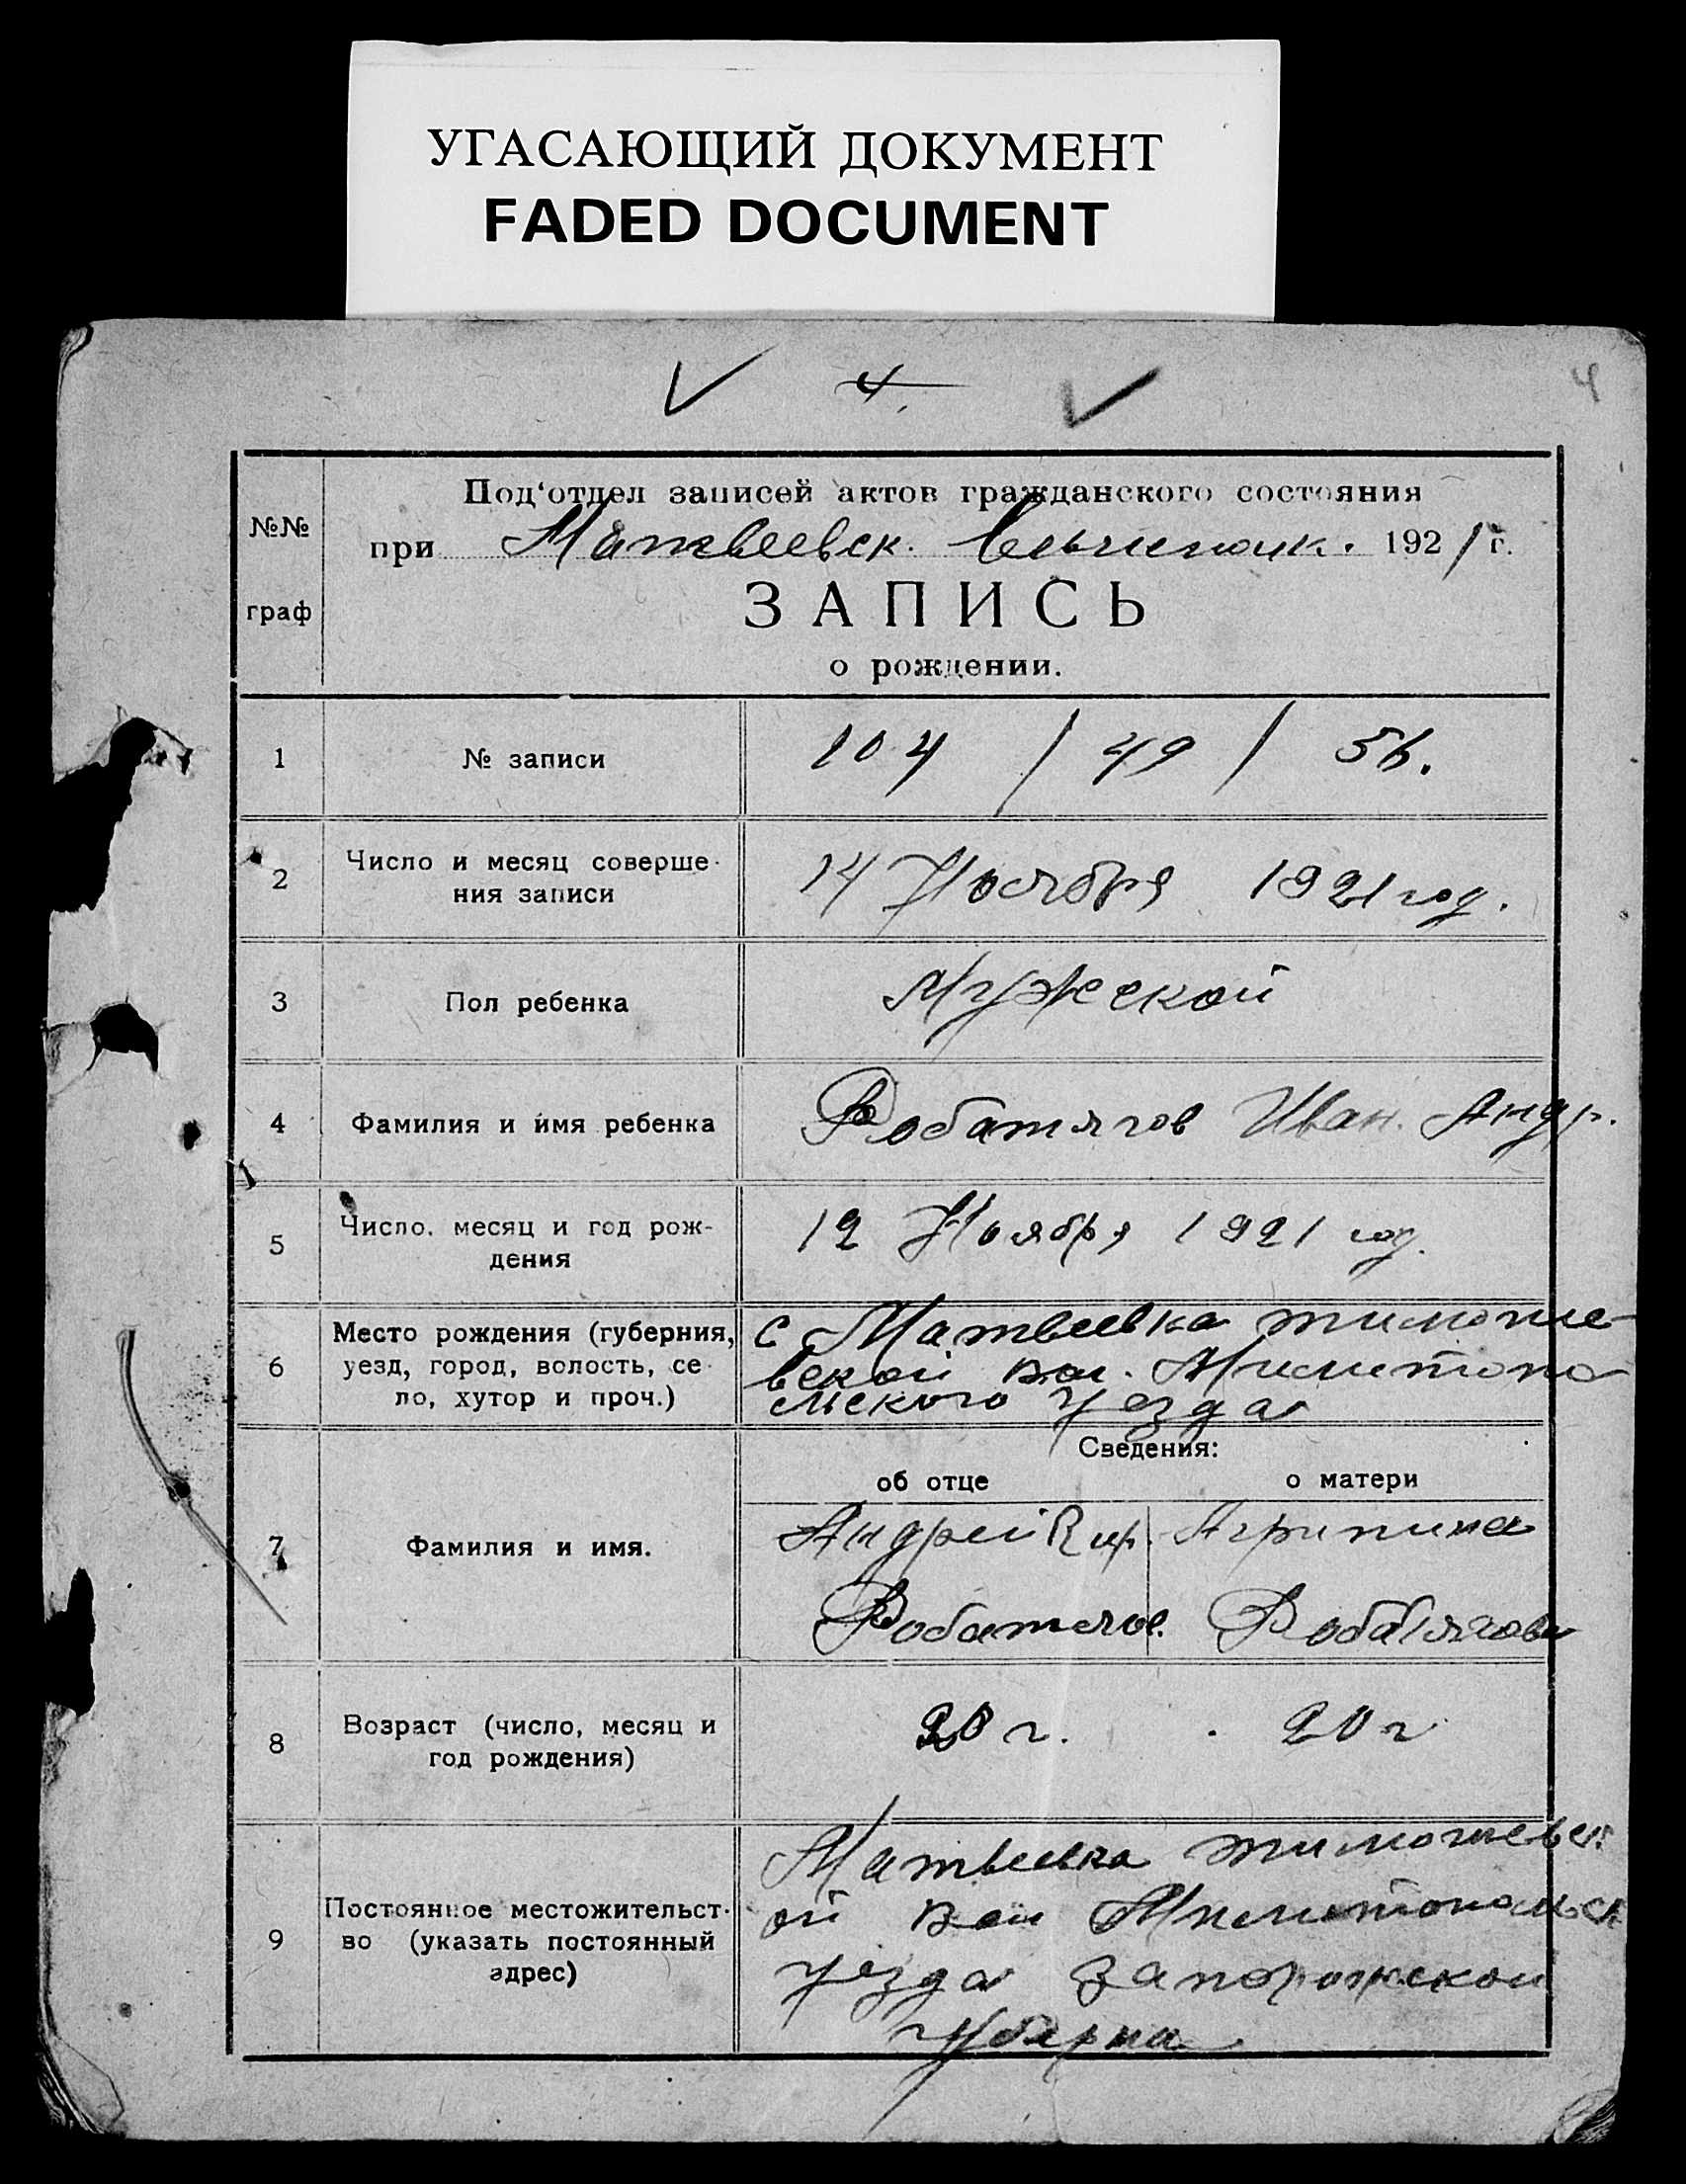 УГАСАЮЩИЙ ДОКУМЕНТ
FADED DOCUMENT
4.
4
№№
граф
Под'отдел записей актов гражданского состояния
при Матвеевск. 1921 г.
ЗАПИСЬ
о рождении.
1 № записи 104 / 49 / 56.
2 Число и месяц соверше-
ния записи
14 Ноября 1921 год.
3 Пол ребенка Мужеской
4 Фамилия и имя ребенка Робатягов Иван. Андр.
5 Число, месяц и год рож-
дения
12 Ноября 1921 год.
6 Место рождения (губерния,
уезд, город, волость, се-
ло, хутор и проч.)
с Матвеевка тимоше-
вской вол. Милитопо-
льского уезда
Сведения:
об отце о матери
7 Фамилия и имя.
Андрей Кир. Агрипина
Робатягов. Робатягова
8 Возраст (число, месяц и
год рождения)
20 г. 20 г
9 Постоянное местожительст-
во (указать постоянный
адрес)
Матвеевка тимошевск
ой вол Милитопольск
уезда Запорожской